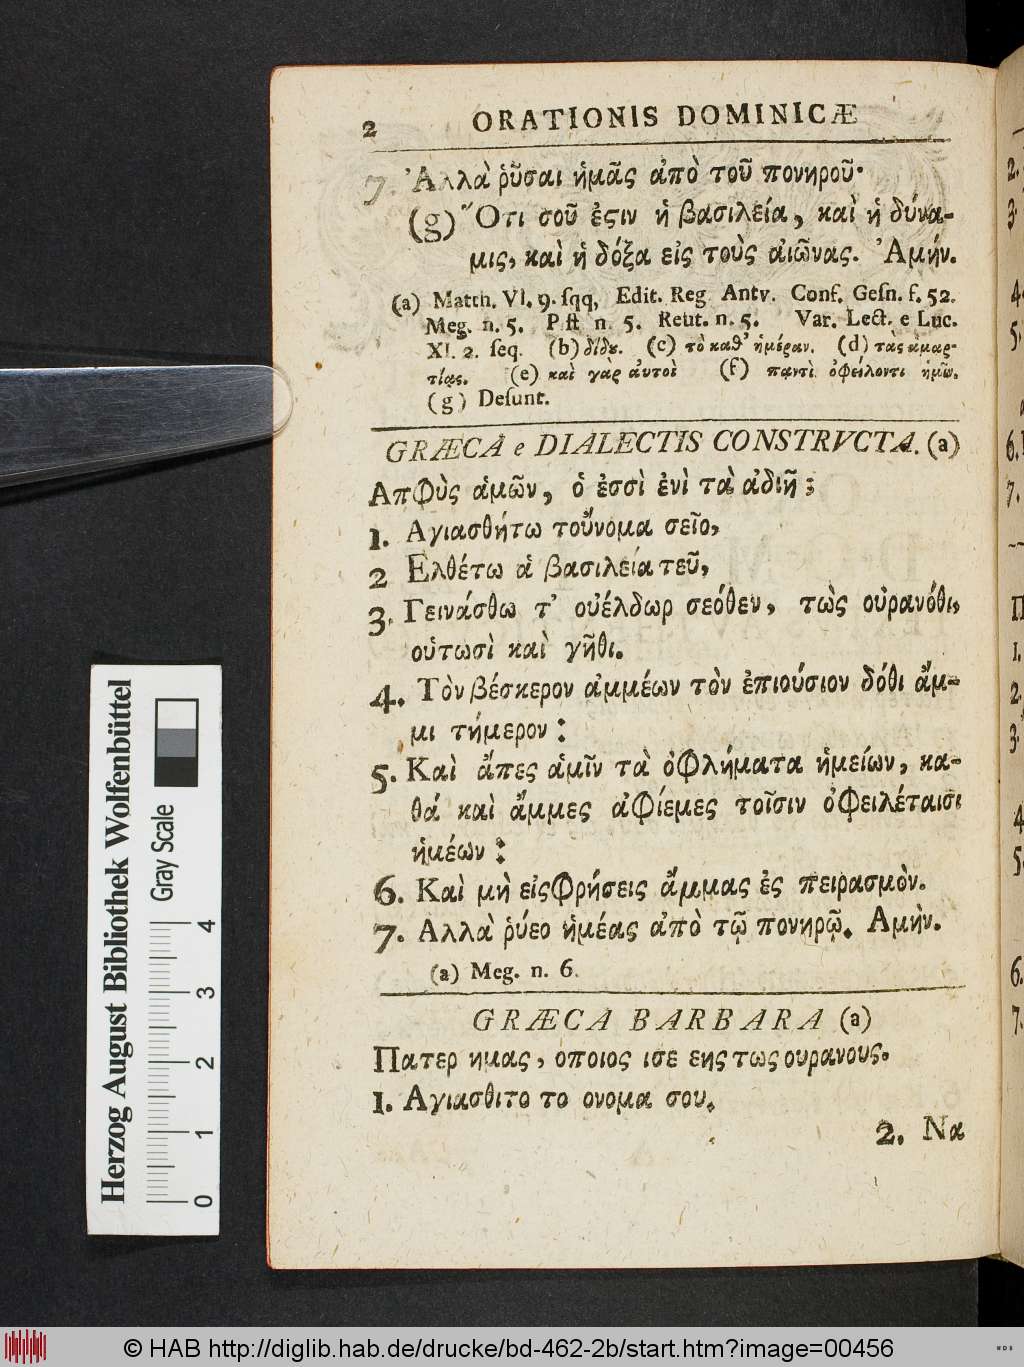 2 ORATIONIS DOMINICÆ
7. Ἀλλὰ ῥῦσαι ἡμᾶς ἀπὸ τοῦ πονηροῦ·
(g) Ὅτι σοῦ ἐϛιν ἡ βασιλεία, καὶ ἡ δύνα-
μις, καὶ ἡ δόξα εἰς τοὺς αἰῶνας. Ἀμήν.
(a) Matth. VI. 9. ſqq, Edit. Reg Antv. Conf. Geſn. f. 52.
Meg. n. 5. Piſt n. 5. Reut. n. 5. Var. Lect. e Luc.
XI. 2. ſeq. (b) δίδȣ. (c) τὸ καθ' ἡμέραν. (d) τὰς ἁμαρ-
τίας. (e) καὶ γὰρ ἀυτοὶ (f) παντὶ ὀφείλοντι ἡμῖν.
(g) Deſunt.
GRÆCA e DIALECTIS CONSTRVCTA. (a)
Απφὺς ἁμῶν, ὁ ἐσσὶ ἐνὶ τὰ ἀδιῆ;
1. Αγιασθήτω τοὔνομα σεῖο,
2 Ελθέτω ἁ βασιλεία τεῦ,
3. Γεινάσθω τ' οὐέλδωρ σεόθεν, τὼς οὐρανόθι,
οὑτωσὶ καὶ γῆθι.
4. Τὸν βέσκερον ἀμμέων τὸν ἐπιούσιον δόθι ἄμ-
μι τήμερον:
5. Καὶ ἄπες ἁμῖν τὰ ὀφλήματα ἡμείων, κα-
θά καὶ ἄμμες ἀφίεμες τοῖσιν ὀφειλέταισι
ἡμέων:
6. Καὶ μὴ εἰςφρήσεις ἄμμας ἐς πειρασμὸν.
7. Αλλὰ ῥύεο ἡμέας ἀπὸ τῷ πονηρῷ. Αμὴν.
(a) Meg. n. 6.
GRÆCA BARBARA (a)
Πατερ ημας, οποιος ισε εης τως ουρανους.
1. Αγιασθιτο το ονομα σου.
2. Να
Herzog August Bibliothek Wolfenbüttel
Gray Scale
0 1 2 3 4
© HAB http://diglib.hab.de/drucke/bd-462-2b/start.htm?image=00456